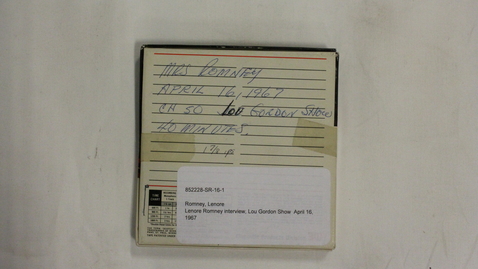 MRS ROMNEY
APRIL 16, 1967
CH 50 LOU GORDON SHOW
40 MINUTES.
852228-SR-16-1
Romney, Lenore
Lenore Romney interview, Lou Gordon Show April 16,
1967